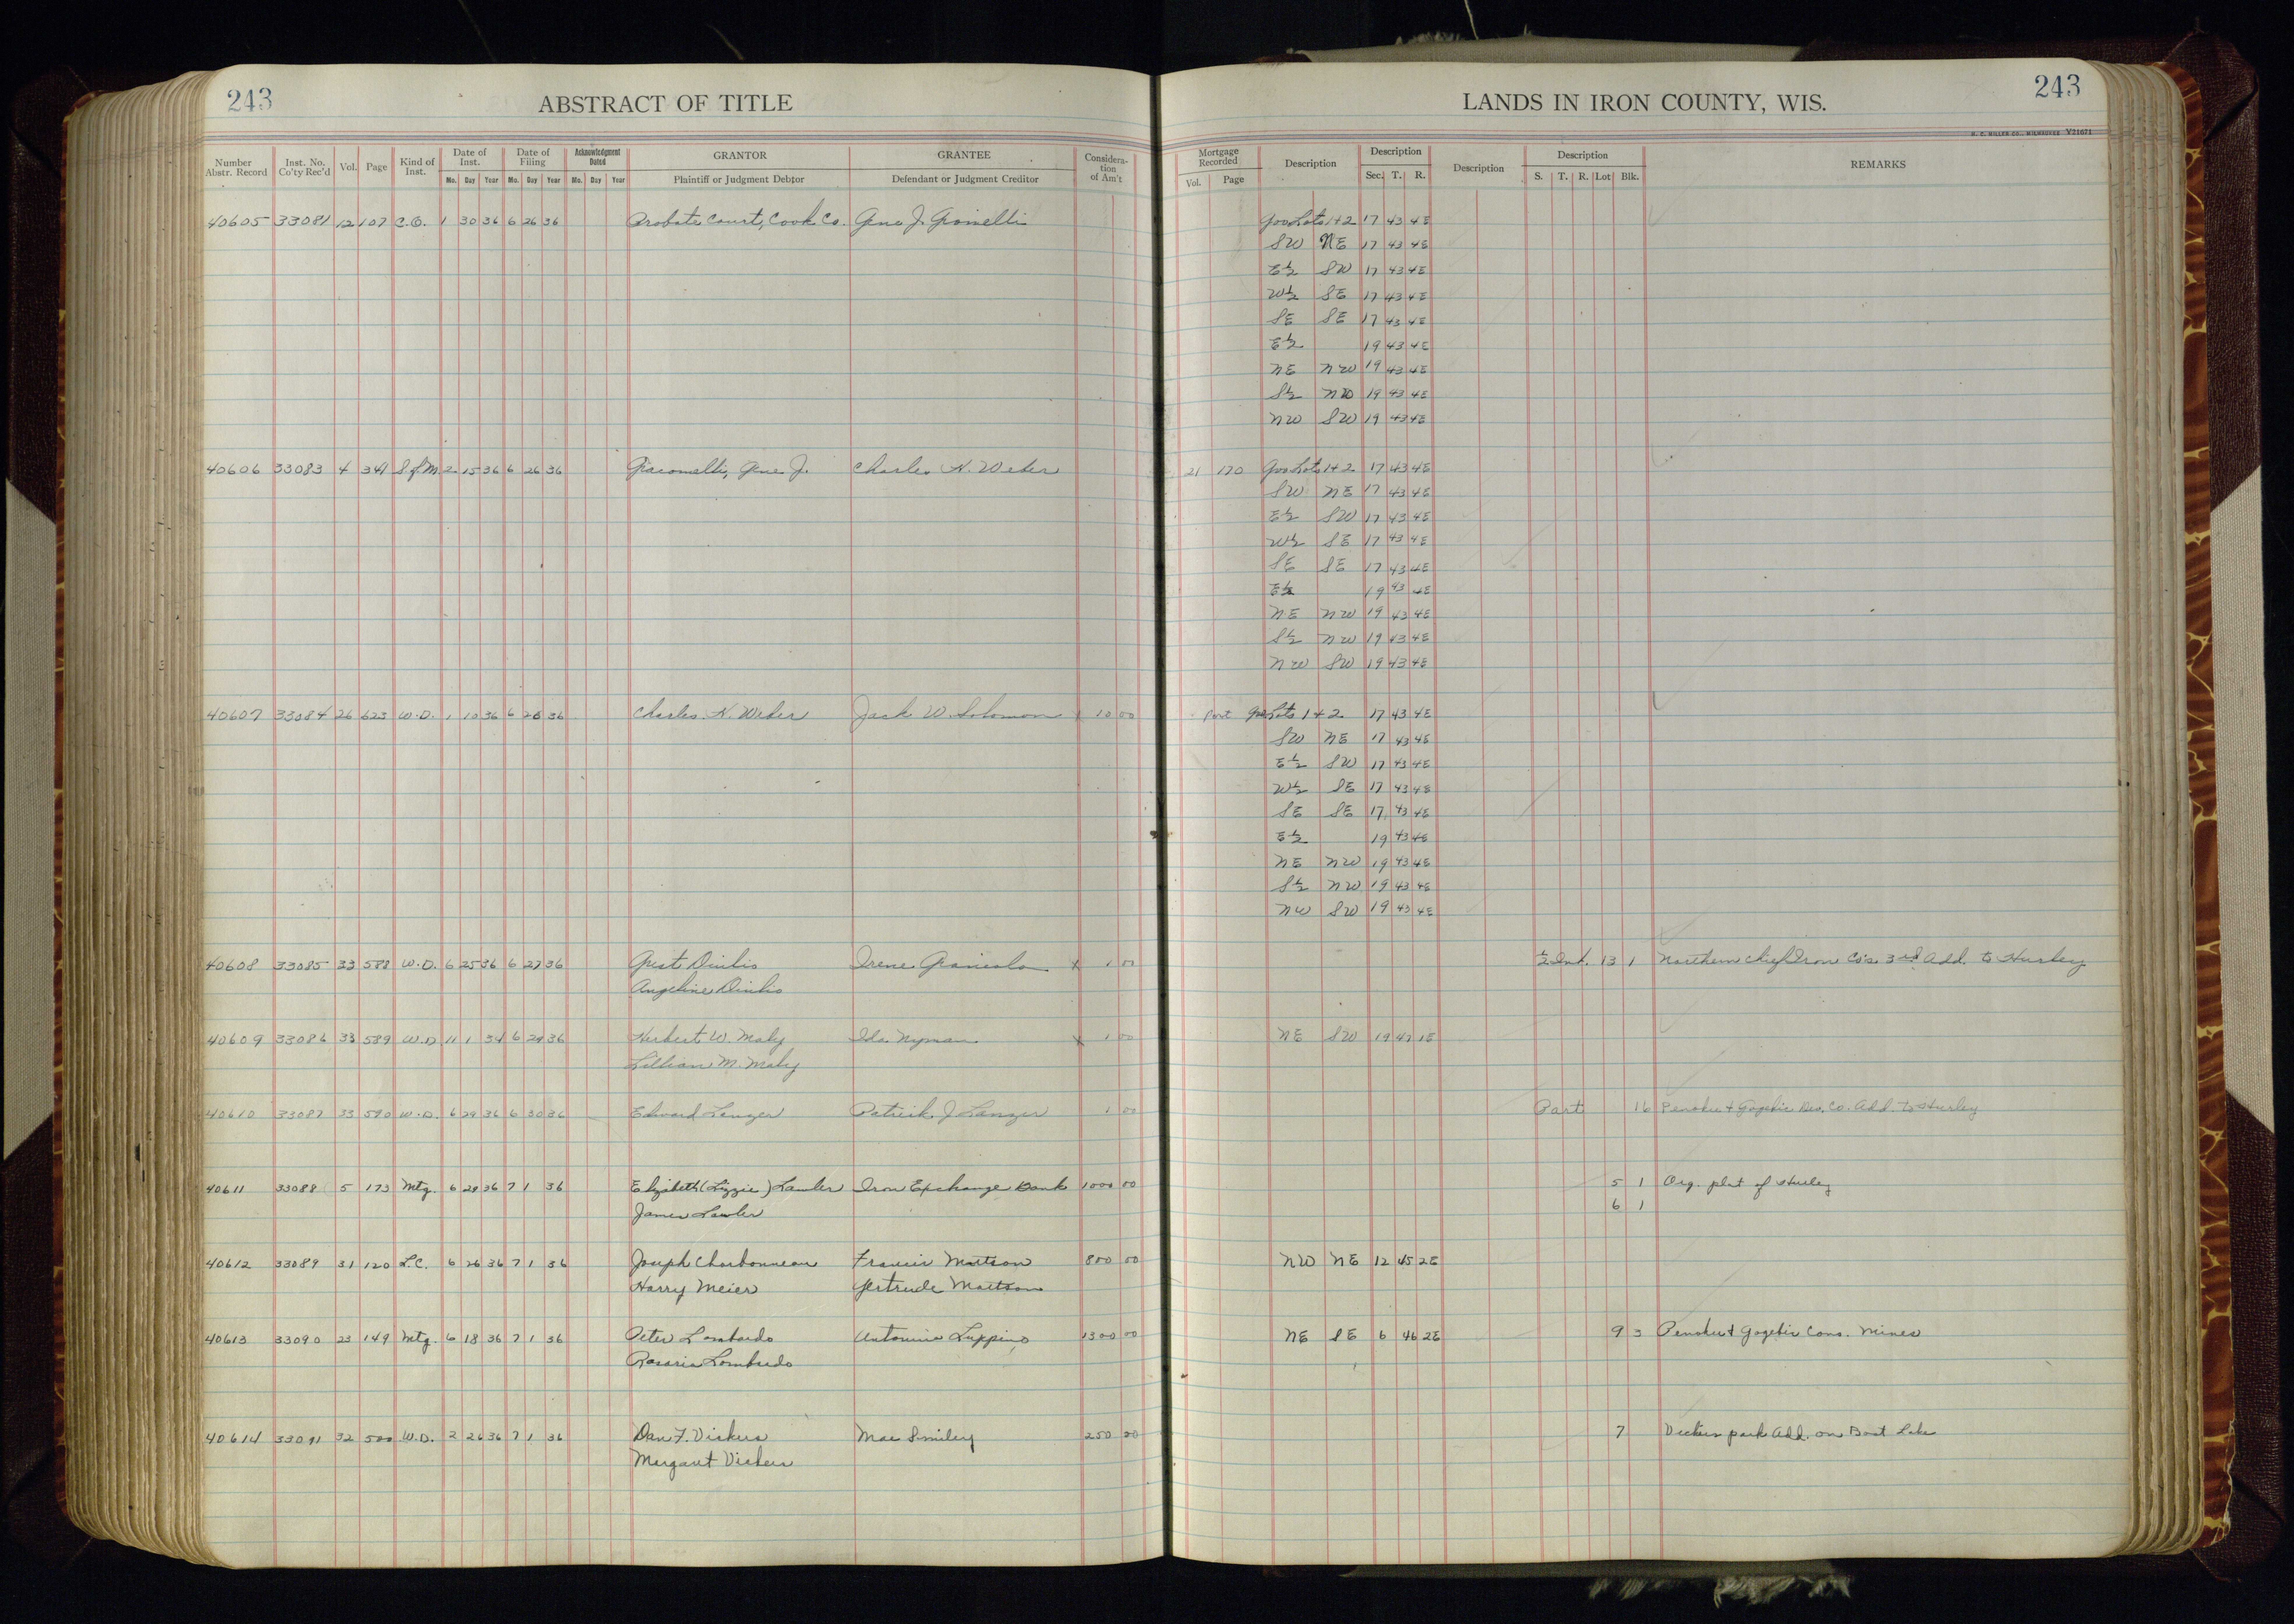 243
ABSTRACT OF TITLE
LANDS IN IRON COUNTY, WIS.
243
H. C. MILLER CO., MILWAUKEE Y21671
Number Abstr. Record Inst. No. Co'ty Rec'd Vol. Page Kind of Inst. Date of Inst. Mo. Day Year Date of Filing Mo. Day Year Acknowledgment Dated Mo. Day Year GRANTOR Plaintiff or Judgment Debtor GRANTEE Defendant or Judgment Creditor Considera-tion of Am't Mortgage Recorded Vol. Page Description Description Sec. T. R. Description Description S. T. R. Lot Blk. REMARKS
40605 33081 12 107 C.O. 1 30 36 6 26 36 Probate Court, Cook Co. Geno J. Gov Lots 1+2 17 43 4E
SW NE 17 43 4E
E½ SW 17 43 4E
W½ SE 17 43 4E
SE SE 17 43 4E
E½ 19 43 4E
NE NW 19 43 4E
S½ NW 19 43 4E
NW SW 19 43 4E
40606 33083 4 341 S of M. 2 15 36 6 26 36 Giacomelli, Geno J. Charles H. Weber 21 170 Gov Lots 1+2 17 43 4E
SW NE 17 43 4E
E½ SW 17 43 4E
W½ SE 17 43 4E
SE SE 17 43 4E
E½ 19 43 4E
NE NW 19 43 4E
S½ NW 19 43 4E
NW SW 19 43 4E
40607 33084 26 623 W.D. 1 10 36 6 26 36 Charles H. Weber Jack W. Solomon x 10 00 Part Gov Lots 1+2 17 43 4E
SW NE 17 43 4E
E½ SW 17 43 4E
W½ SE 17 43 4E
SE SE 17 43 4E
E½ 19 43 4E
NE NW 19 43 4E
S½ NW 19 43 4E
NW SW 19 43 4E
40608 33085 33 588 W.D. 6 25 36 6 27 36 Irene x 1 00 ½ Int. 13 1 Northern Chief Iron Co's. 3rd Add. to Hurley
Angeline
40609 33086 33 589 W.D. 11 1 34 6 29 36 Herbert W. Maky Ida Nyman x 1 00 NE SW 19 47 1E
Lillian M. Maky
40610 33087 33 590 W.D. 6 29 36 6 30 36 Edward Lanzer Patrick J. Lanzer 1 00 Part 16 Penokee & Gogebic Dev. Co. Add. to Hurley
40611 33088 5 173 Mtg. 6 29 36 7 1 36 Elizabeth (Lizzie) Lawler Iron Exchange Bank 1000 00 5 1 Org. plat of Hurley
James Lawler 6 1
40612 33089 31 120 L.C. 6 26 36 7 1 36 Joseph Charbonneau Francis Mattson 800 00 NW NE 12 45 2E
Harry Meier Gertrude Mattson
40613 33090 23 149 Mtg. 6 18 36 7 1 36 Peter Lombardo Antonina Luppino 1300 00 NE SE 6 46 2E 9 3 Penokee & Gogebic Cons. Mines
Rosaria Lombardo
40614 33091 32 500 W.D. 2 26 36 7 1 36 Dan F. Vickers Mae Smiley 250 00 7 Vickers park Add. on Boot Lake
Margaret Vickers